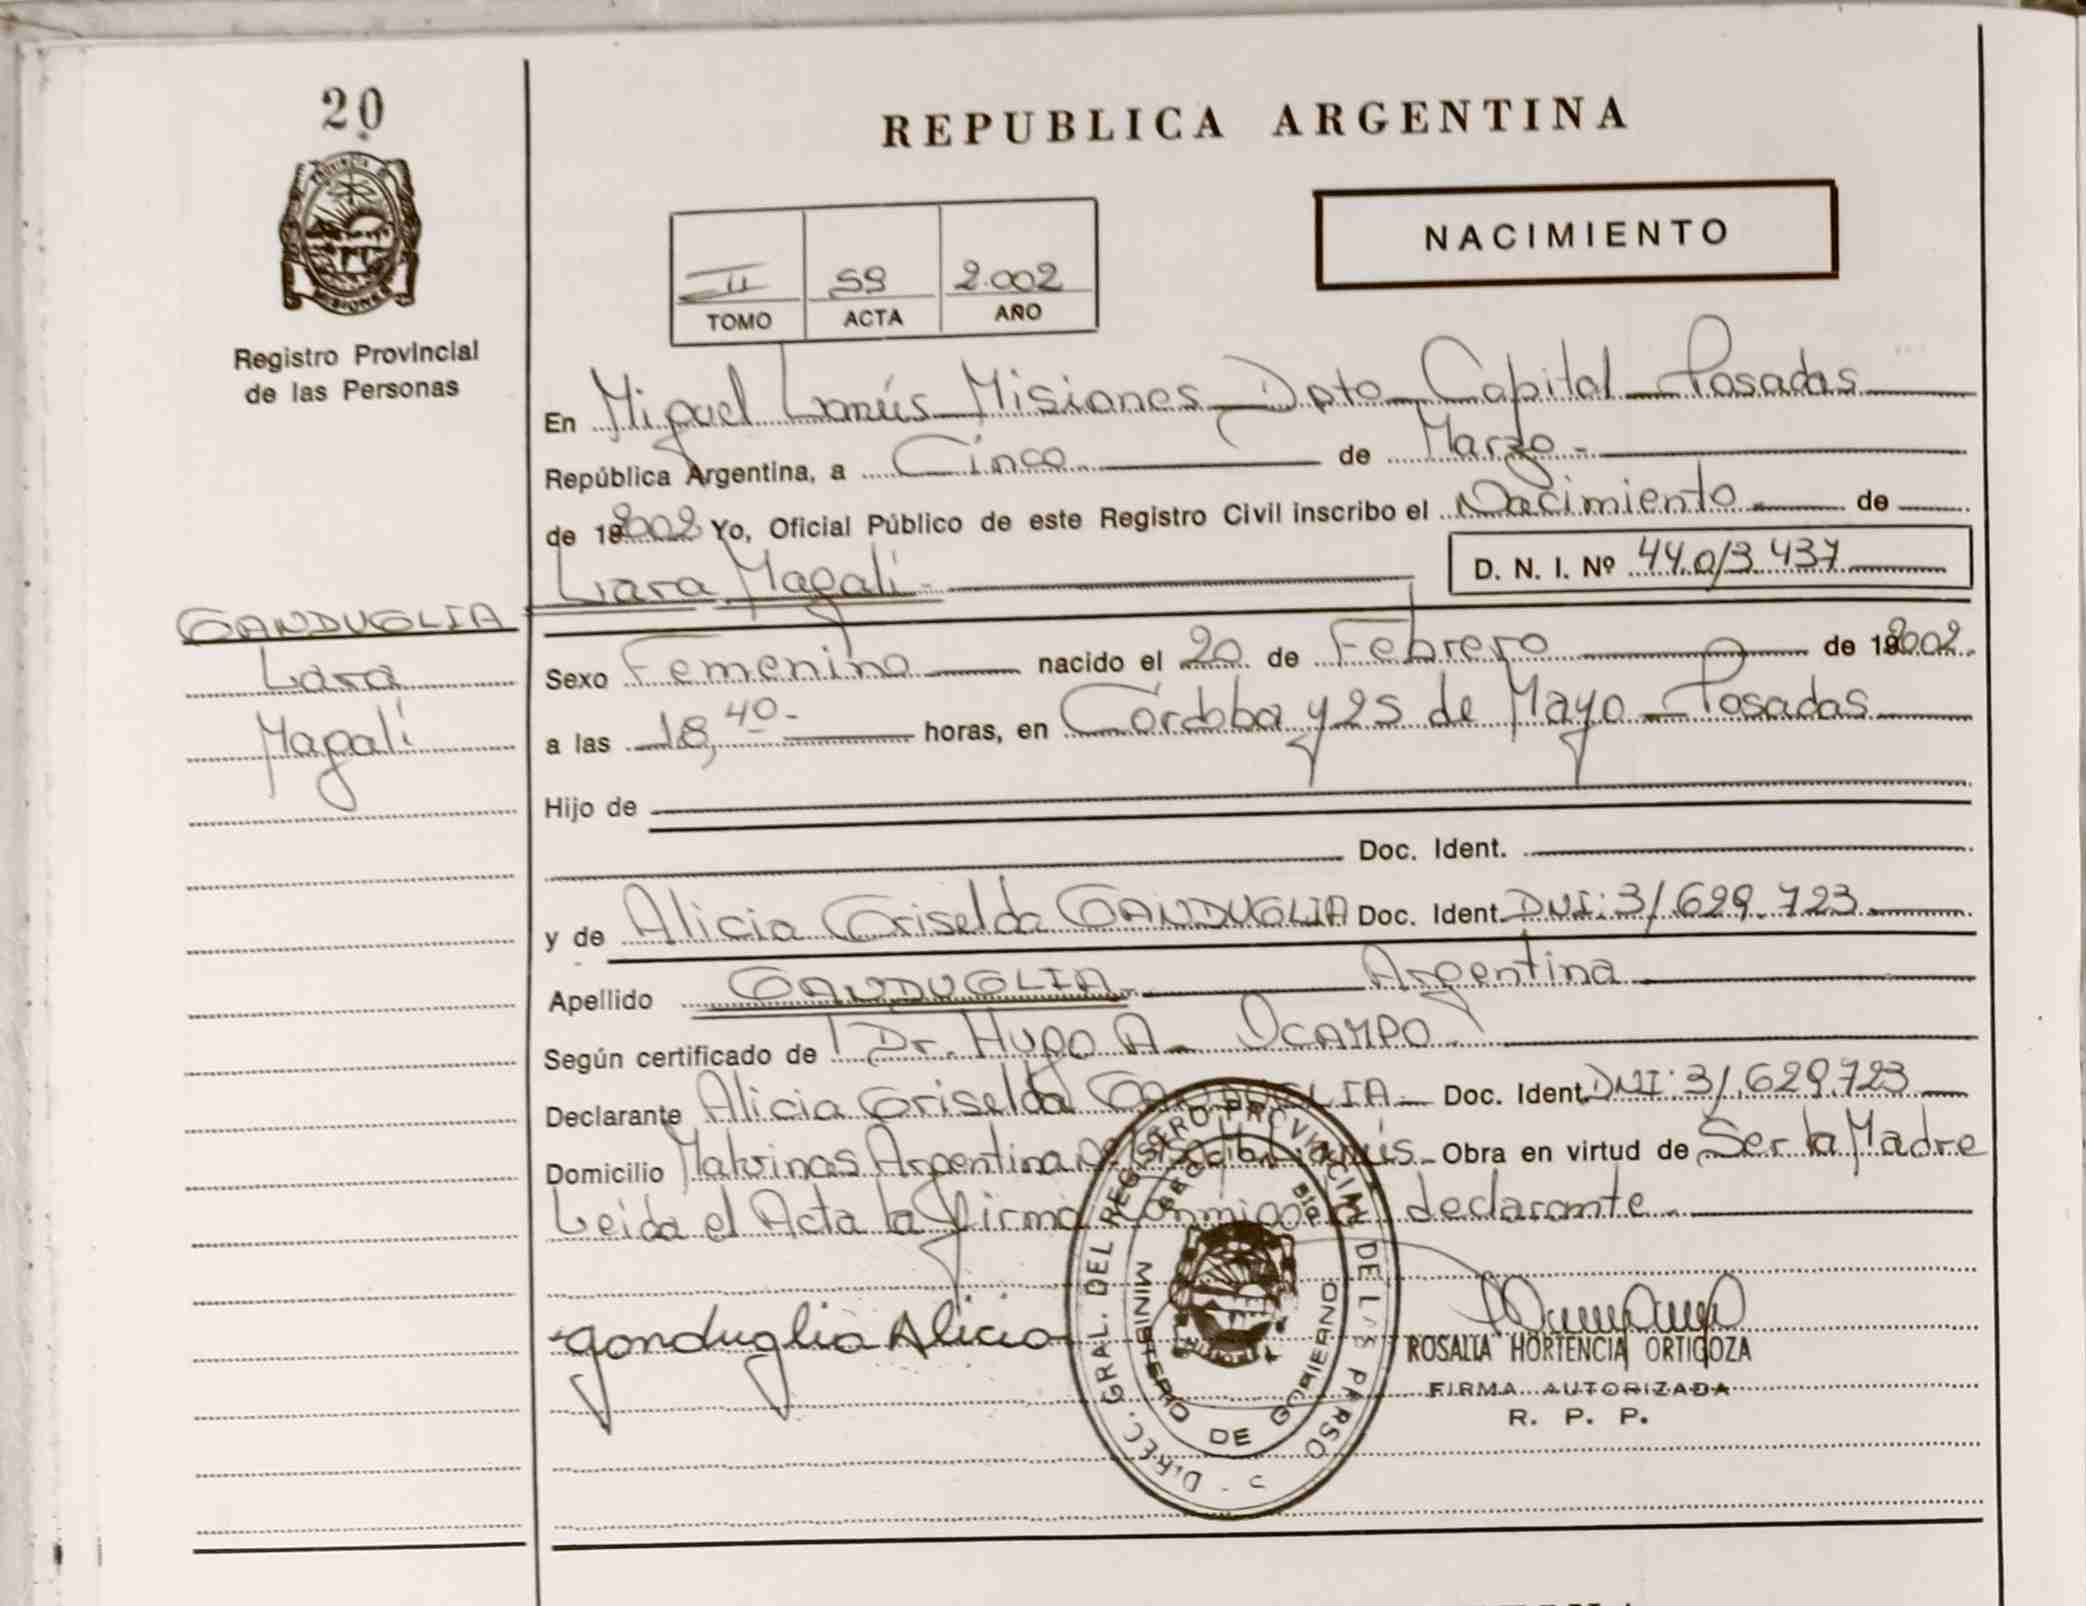 20
REPUBLICA ARGENTINA
NACIMIENTO
II 59 2.002
TOMO ACTA AÑO
Registro Provincial
de las Personas
En Miguel Lanús Misiones Dpto Capital Posadas
República Argentina, a Cinco de Marzo
de 192002 Yo, Oficial Público de este Registro Civil inscribo el Nacimiento de
Lara Magalí
D. N. I. Nº 44.013.437
GANDUGLIA
Lara
Magalí
Sexo Femenino nacido el 20 de Febrero de 192002.
a las 18,40 horas, en Córdoba y 25 de Mayo Posadas
Hijo de
Doc. Ident.
y de Alicia Griselda GANDUGLIA Doc. Ident. DNI: 31.629.723
Apellido GANDUGLIA Argentina
Según certificado de Dr. Hugo A. OCAMPO
Declarante Alicia Griselda GANDUGLIA Doc. Ident. DNI: 31.629.723
Domicilio Malvinas Argentina Lanús Obra en virtud de Ser la Madre
Leida el Acta la firma Conmigo la declarante
Ganduglia Alicia
ROSALIA HORTENCIA ORTIGOZA
FIRMA AUTORIZADA
R. P. P.
DIREC. GRAL. DEL REGISTRO PROVINCIAL DE LAS PARSO
MINISTERIO DE GOBIERNO